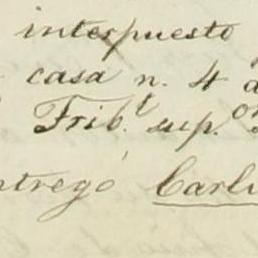 interpuesto
casa n. 4
Trib.t sup.or
ntregó Carl